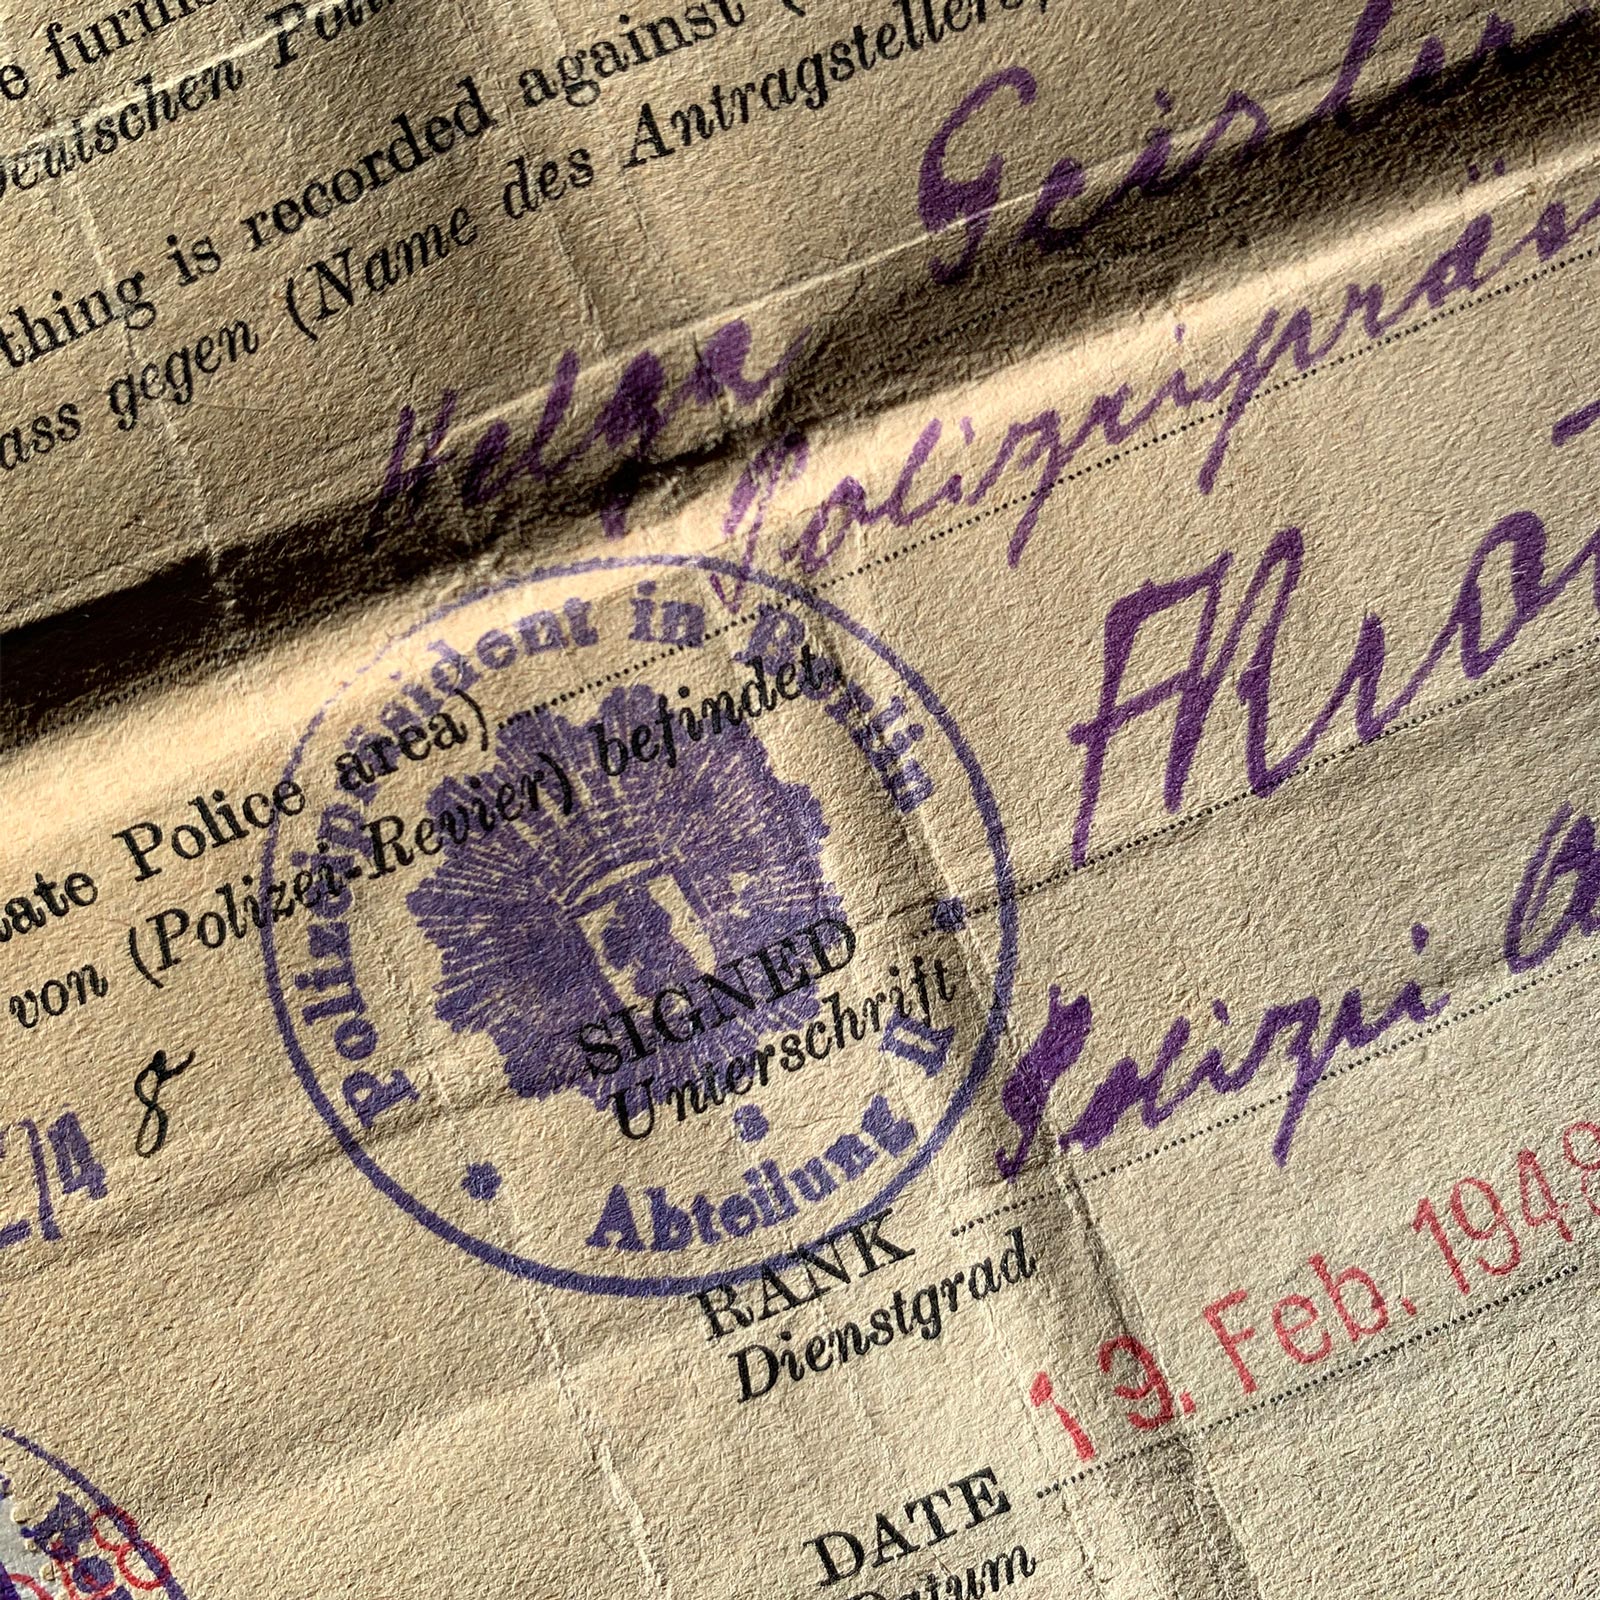 e furth
Deutschen Poli
thing is recorded against (
ass gegen (Name des Antragstellers,
Geisler
Helga
Polizeipräsi
cate Police area)
von (Polizei-Revier) befindet.
Polizeipräsident in Berlin
Abteilung II
274 8
SIGNED
Unterschrift
Polizei
RANK
Dienstgrad
19. Feb. 1948
DATE
Datum